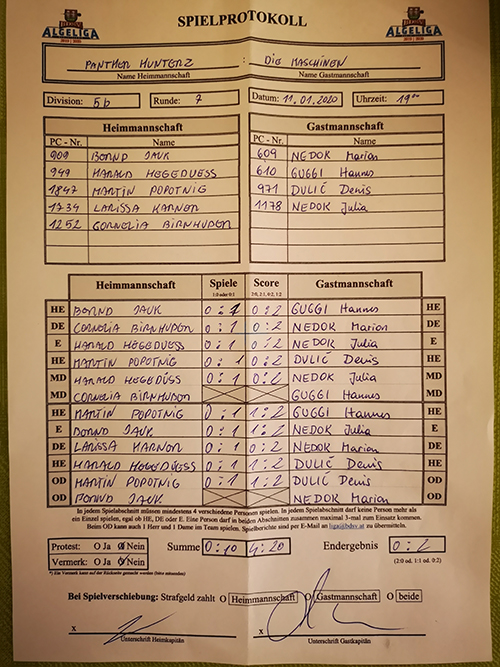 ALGELIGA SPIELPROTOKOLL ALGELIGA
PANTHER HUNTERZ : DIE MASCHINEN
Name Heimmannschaft Name Gastmannschaft
Division: 5b Runde: 7 Datum: 11.01.2020 Uhrzeit: 19⁰⁰
Heimmannschaft Gastmannschaft
PC - Nr. Name PC - Nr. Name
909 BORND JAUK 609 NEDOK Marion
949 HARALD HEGEDUESS 610 GUGGI Hannes
1847 MARTIN POPOTNIG 971 DULIĆ Denis
1734 LARISSA KARNER 1178 NEDOK Julia
1252 CORNELIA BIRNHUBER
Heimmannschaft Spiele Score Gastmannschaft
1:0 oder 0:1 2:0, 2:1, 0:2, 1:2
HE BORND JAUK 0:1 0:2 GUGGI Hannes HE
DE CORNELIA BIRNHUBER 0:1 0:2 NEDOK Marion DE
E HARALD HEGEDUESS 0:1 0:2 NEDOK Julia E
HE MARTIN POPOTNIG 0:1 0:2 DULIĆ Denis HE
MD HARALD HEGEDÜSS 0:1 0:2 NEDOK Julia MD
MD CORNELIA BIRNHUBER GUGGI Hannes MD
HE MARTIN POPOTNIG 0:1 1:2 GUGGI Hannes HE
E BORND JAUK 0:1 1:2 NEDOK Julia E
DE LARISSA KARNER 0:1 0:2 NEDOK Marion DE
HE HARALD HEGEDÜESS 0:1 1:2 DULIĆ Denis HE
OD MARTIN POPOTNIG 0:1 1:2 DULIĆ Denis OD
OD BORND JAUK NEDOK Marion OD
In jedem Spielabschnitt müssen mindestens 4 verschiedene Personen spielen. In jedem Spielabschnitt darf keine Person mehr als
ein Einzel spielen, egal ob HE, DE oder E. Eine Person darf in beiden Abschnitten zusammen maximal 3-mal zum Einsatz kommen.
Beim OD kann auch 1 Herr und 1 Dame im Team spielen. Spielberichte sind per E-Mail an liga@bdsv.at zu übermitteln.
Protest: O Ja O Nein Summe 0:10 4:20 Endergebnis 0:2
Vermerk: O Ja O Nein (2:0 od. 1:1 od. 0:2)
*) Ein Vermerk kann auf der Rückseite gemacht werden (bitte ankreuzen)
Bei Spielverschiebung: Strafgeld zahlt O Heimmannschaft O Gastmannschaft O beide
x x
Unterschrift Heimkapitän Unterschrift Gastkapitän